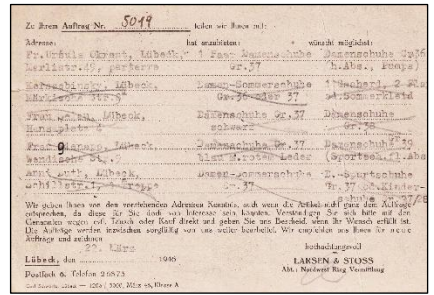 Zu Ihrem Auftrag Nr. 5019 teilen wir Ihnen mit:
Adresse: hat anzubieten: wünscht möglichst:
Fr. Ursula Okrent, Lübeck, 1 Paar Damenschuhe Damenschuhe Gr 36
Marlistr. 49, parterre Gr. 37 (h. Abs., Pumps)
Lübeck, Damen-Sommerschuhe
Märkische Str. 9 Gr. 36 oder 37 Sommerkleid
Frau Lübeck, Damenschuhe Gr. 37, Damenschuhe
Hansaplatz schwarz Gr. 38
Frau Lübeck, Damenschuhe Gr. 37 Damenschuhe 39
Wendische Str. 9 blau m. rotem Leder (Sportsch. fl. Abs
Anni Luth, Lübeck, Damen-Sommerschuhe D.-Sportschuhe
Schillstr. 1, Treppe Gr. 37 Gr. 37 od. Kinder-
schuhe Gr. 27/28
Wir geben Ihnen von den verstehenden Adressen Kenntnis, auch wenn die Artikel nicht ganz dem Auftrage
entsprechen, da diese für Sie doch von Interesse sein könnten. Verständigen Sie sich bitte mit den
Genannten wegen evtl. Tausch oder Kauf direkt und geben Sie uns Bescheid, wenn Ihr Wunsch erfüllt ist.
Die Aufträge werden inzwischen sorgfältig von uns weiter bearbeitet. Wir empfehlen uns Ihnen für neue
Aufträge und zeichnen
22. März hochachtungsvoll
Lübeck, den 1946 LARSEN & STOSS
Postfach 6. Telefon 26873 Abt.: Nordwest Ring Vermittlung